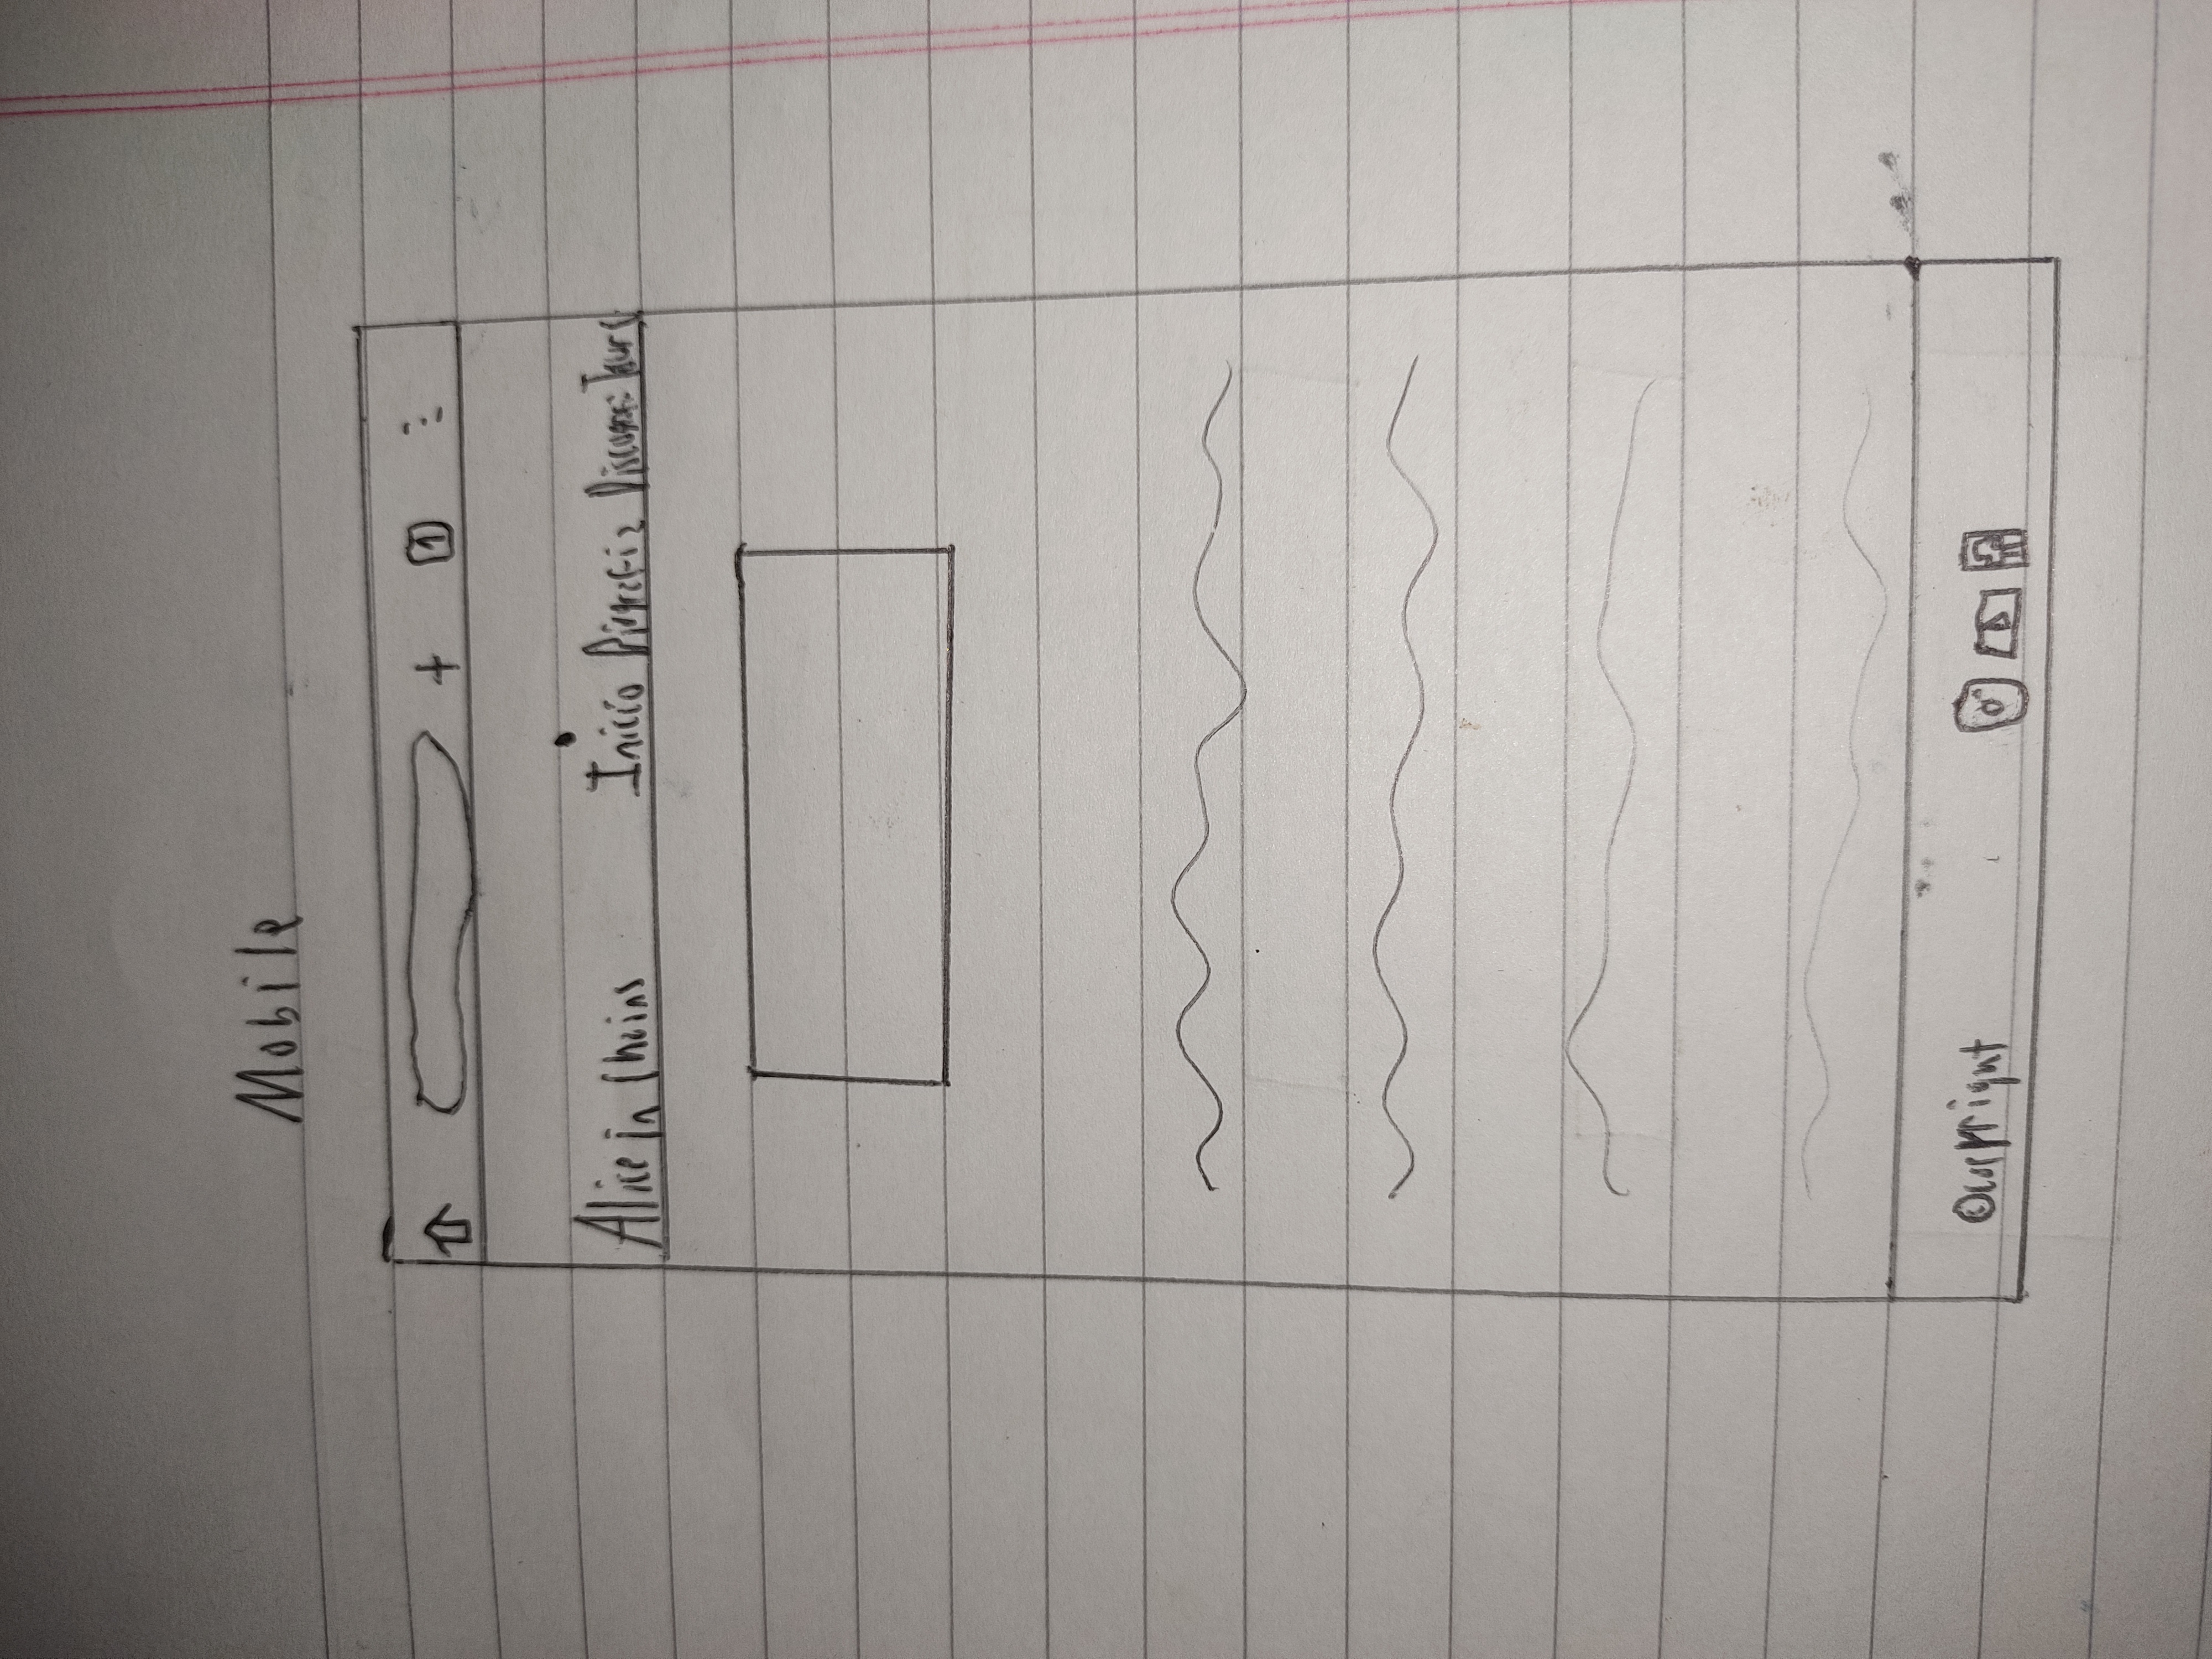 Mobile
+ 1
Alice in Chains Inicio Biografia Discogra Tours
©Copyright